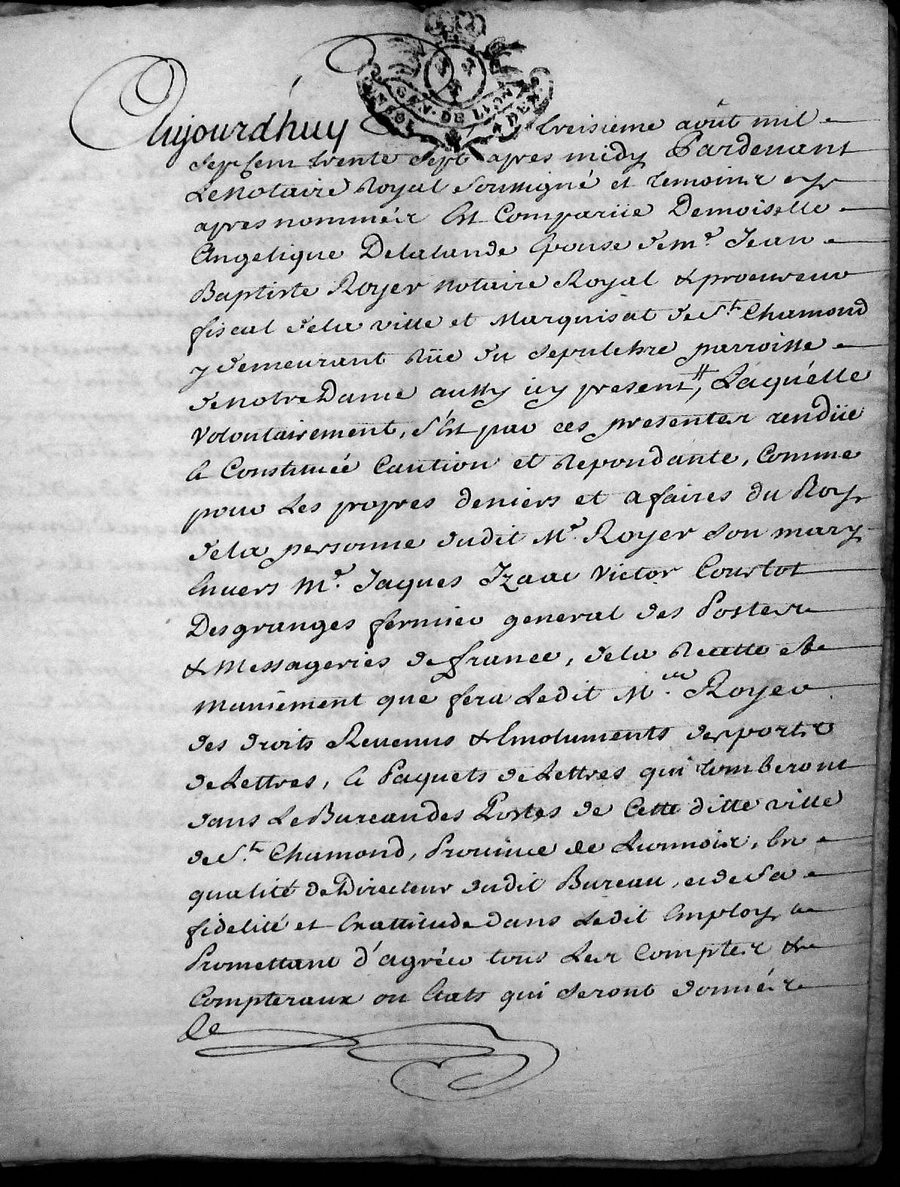 GEN. DE LION
4 DEN.
Aujourd'huy treisieme août mil
Sept Cent trente Sept apres midy Pardevant
Le Notaire Royal Soussigné et temoins cy
apres nommés Est Comparüe Demoiselle
Angelique Delalande Epouse de Mr. Jean
Baptiste Royer Notaire Royal & procureur
fiscal dela ville et Marquisat de St. Chamond
y demeurant Rüe du Sepulchre parroisse
de Notre Dame aussy icy present, Laquelle
Volontairement, S'est par ces presentes rendüe
& Constituée Caution et Repondante, Comme
pour Les propres deniers et afaires du Roy
dela personne dudit Mr. Royer Son mary
Envers Mr. Jaques Izaac Victor Courtot
Desgranges fermier general des Postes
& Messageries de france, dela Recette et
maniement que fera Ledit Mre Royer
des droits Revenus & Emoluments des ports
de Lettres, & Paquets de Lettres qui tomberont
dans Le Bureau des Postes de Cette ditte ville
de St. Chamond, Province de Lionnois, En
qualité de Directeur dudit Bureau, et de Sa
fidelité et Exattitude dans Ledit Employ
Promettant d'agréer tous Les Comptes &
Comptereaux ou Etats qui Seront donnés
De